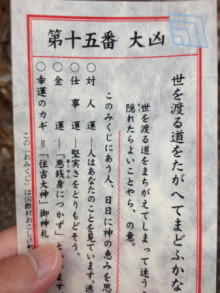 第十五番 大凶
世を渡る道をたがへてまどふかな
世を渡る道をまちがえてしまって迷う
隠れたらよいことやら、の意。
このみくじにあう人、日日に神の恵みを思
○対人運―人はあなたのことを見ています。
○仕事運―堅実さをとりもどそう。
○金運―「悪銭身につかず」と
○幸運のカギ=「住吉大神」御神札
この「おみくじ」は